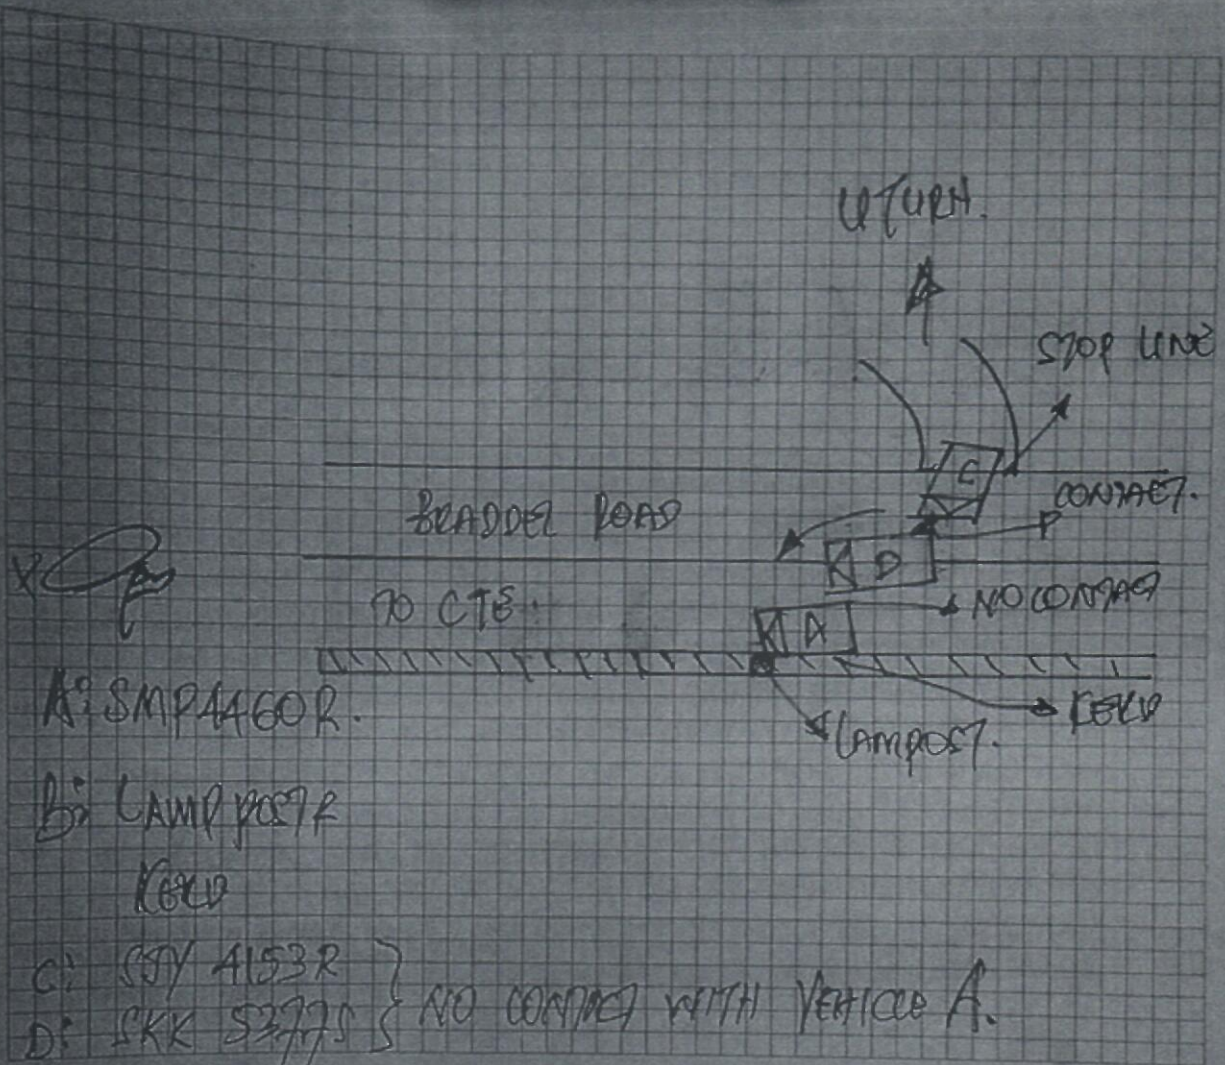 UTURN.
STOP LINE
C
CONTACT.
BRADDEL ROAD
D
NO CONTACT
TO CTE.
A
KERB
LAMPOST.
A: SMP4460R.
B: LAMP POST &
KERB
C: SJY 4153R
D: SKK 5377S
NO CONTACT WITH VEHICLE A.